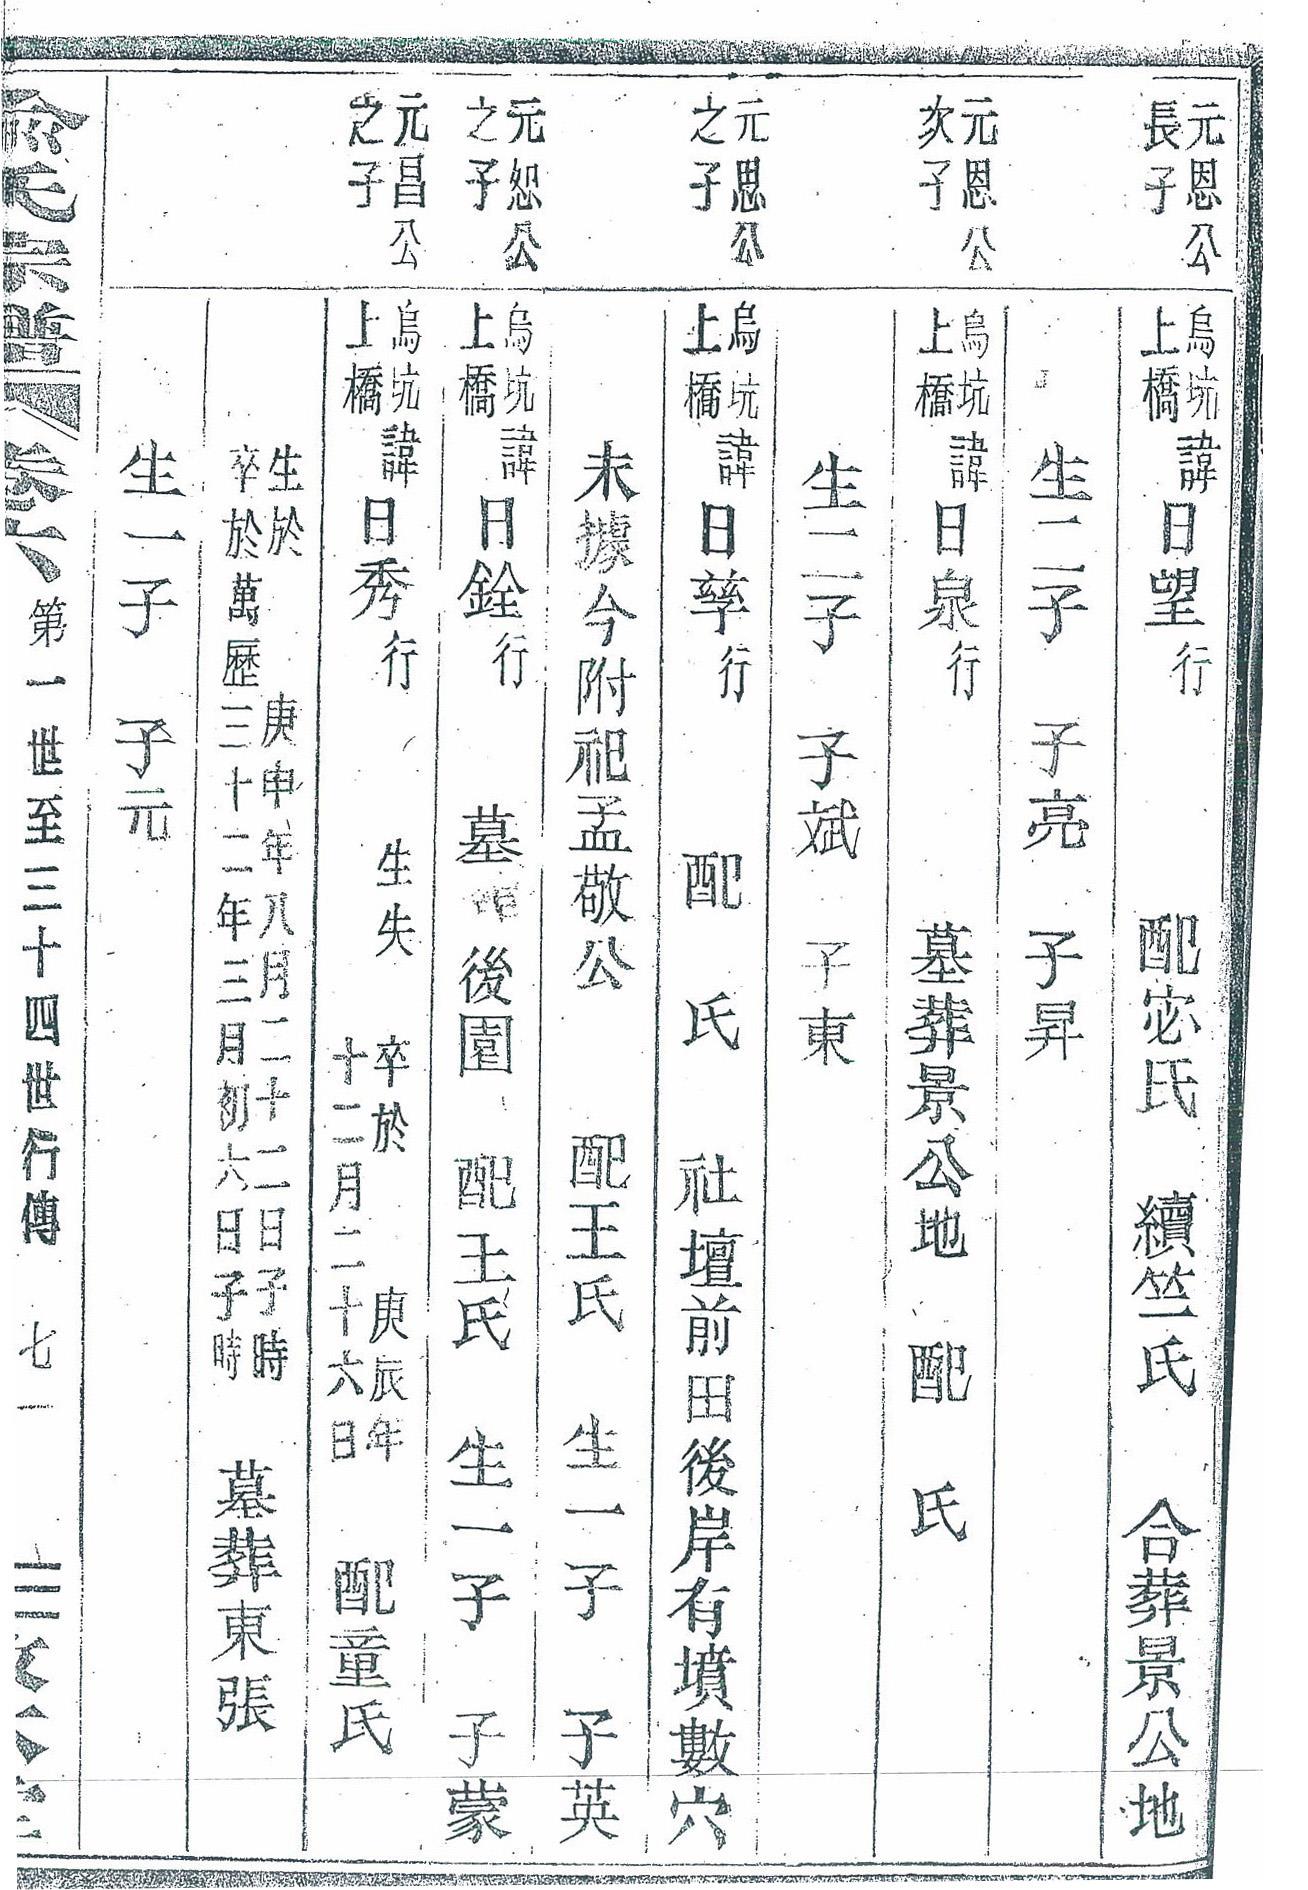 元恩公
長子
烏坑
上橋
諱日望行 配宓氏 續竺氏 合葬景公地
生二子 子亮 子昇
元恩公
次子
烏坑
上橋
諱日泉行 墓葬景公地 配 氏
生二子 子斌 子東
元思公
之子
烏坑
上橋
諱日孳行 配 氏 社壇前田後岸有墳數穴
未據今附祀孟敬公 配王氏 生一子 子英
元恕公
之子
烏坑
上橋
諱日銓行 墓 後園 配王氏 生一子 子蒙
元昌公
之子
烏坑
上橋
諱日秀行 生失 卒於 庚辰年
十二月二十六日 配童氏
生於 庚申年八月二十二日子時
卒於萬歷三十二年三月初六日子時 墓葬東張
生一子 子元
俞氏宗譜 卷六 第一世至三十四世行傳 七一